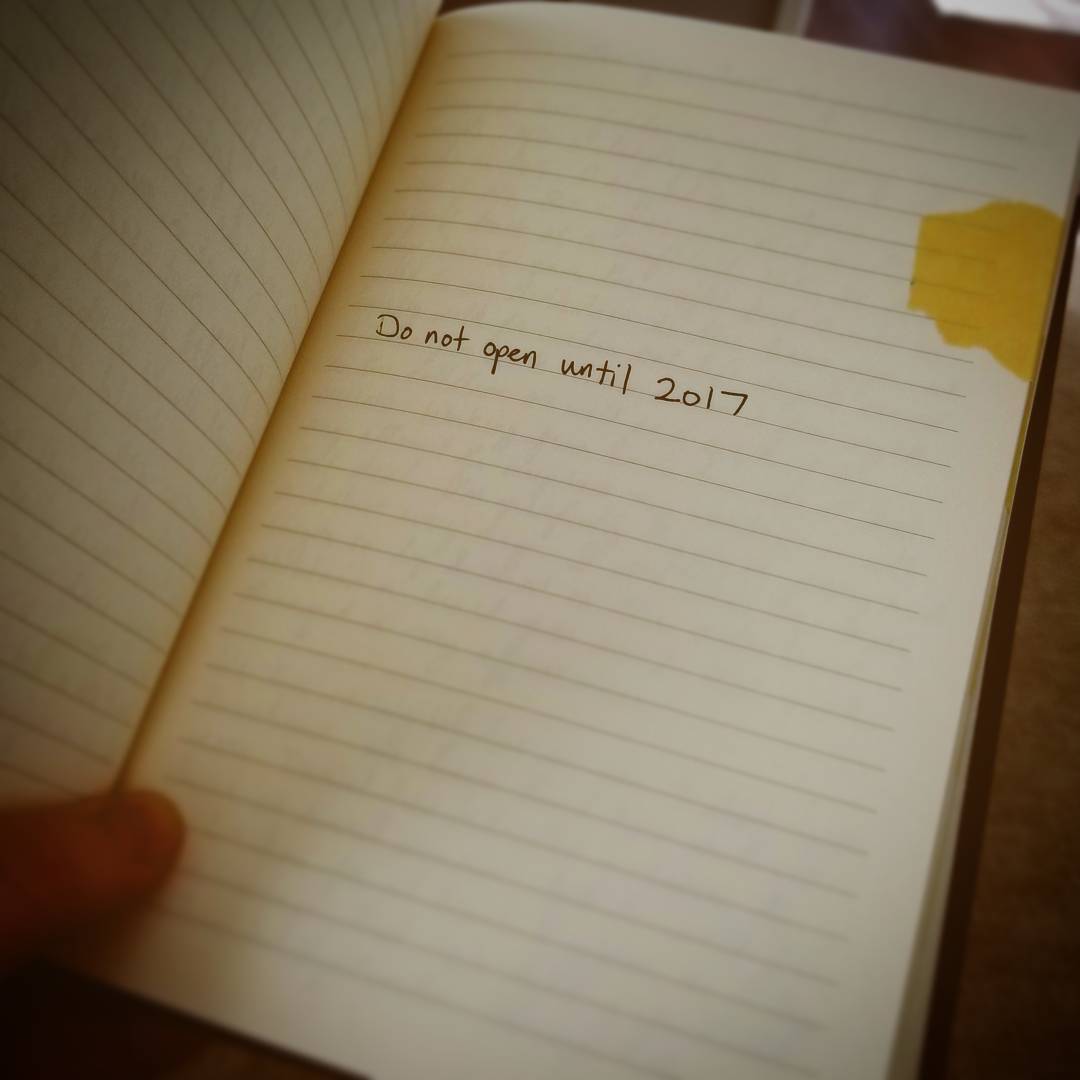 Do not open until 2017